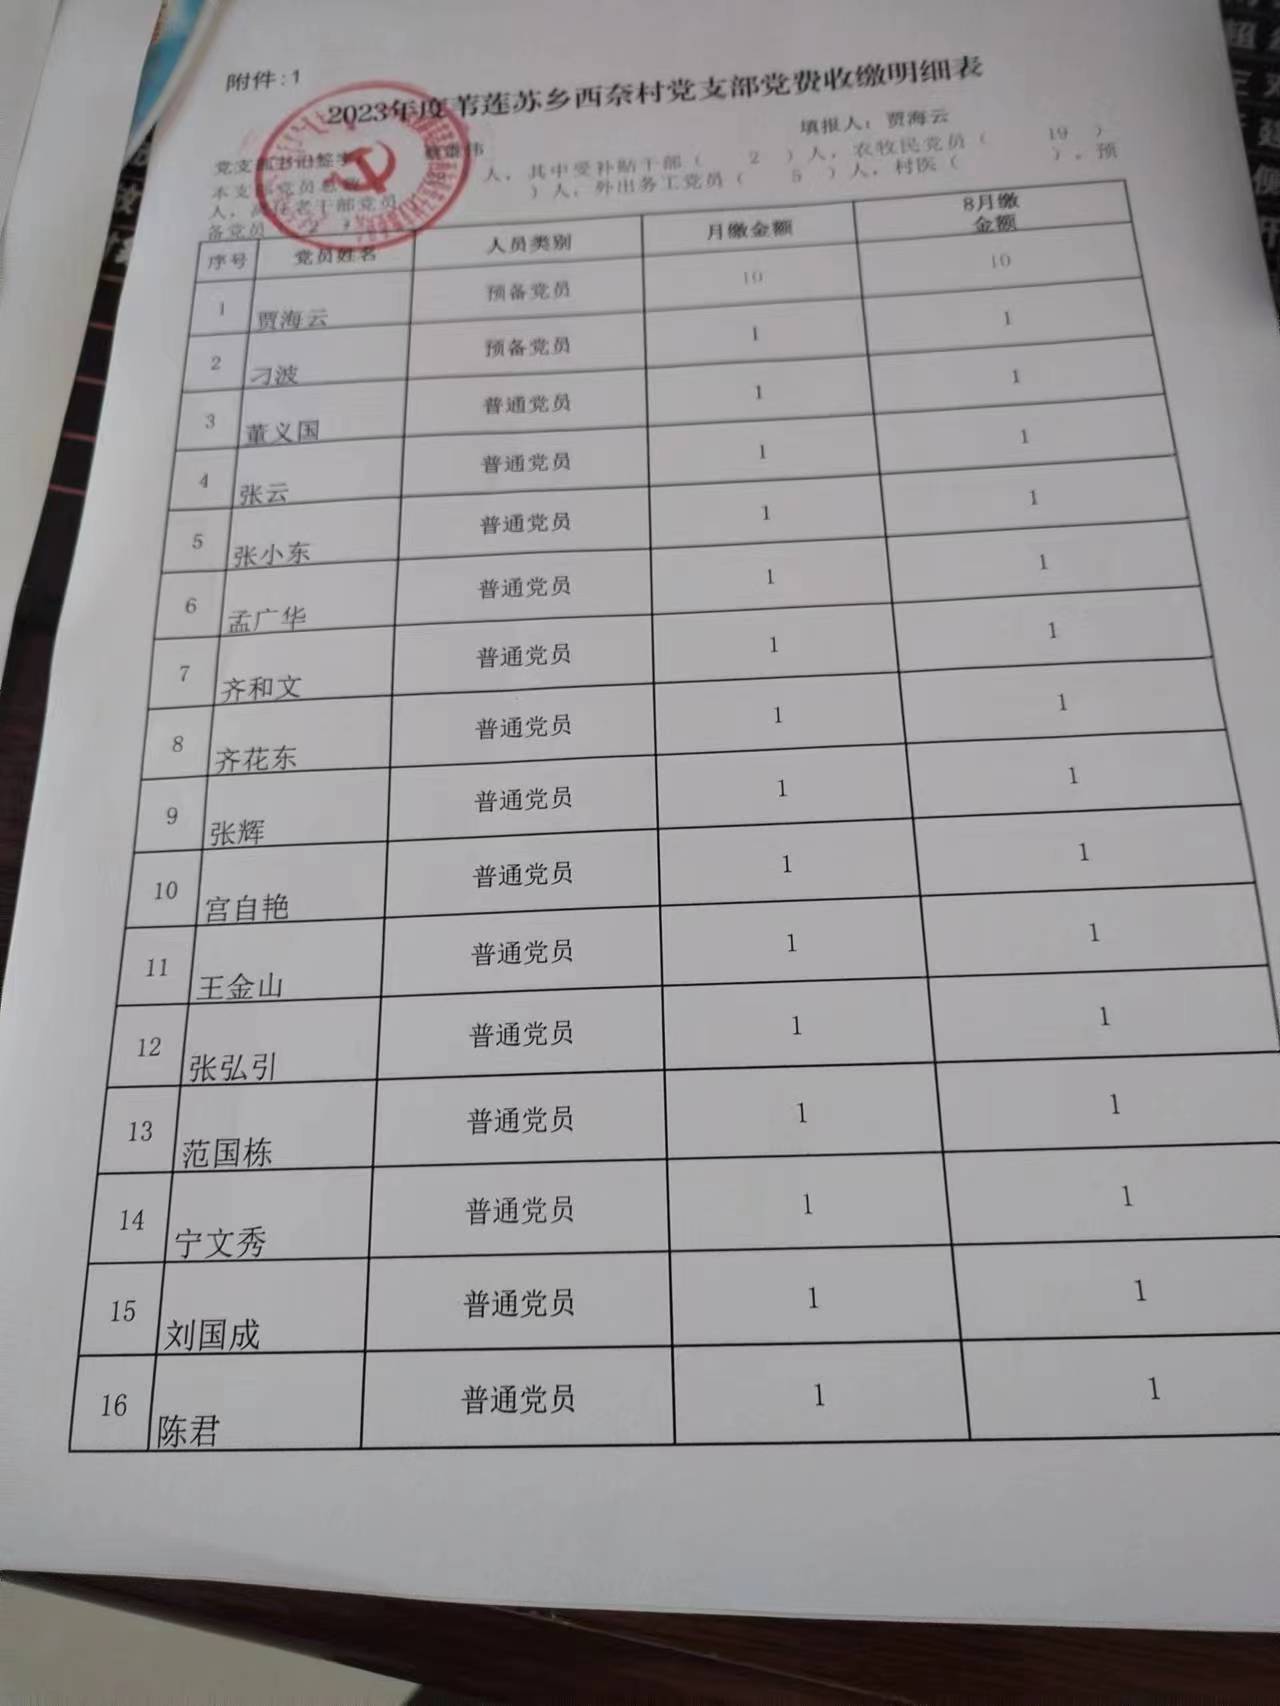 附件:1
2023年度苇莲苏乡西奈村党支部党费收缴明细表
党支部书记签字 填报人：贾海云
本支部党员总数 人，其中受补贴干部（ 2 ）人，农牧民党员（ 19 ）
人，离任老干部党员 ）人，外出务工党员（ 5 ）人，村医（ ），预
备党员 2
序号 党员姓名 人员类别 月缴金额 8月缴金额
1 贾海云 预备党员 10 10
2 刁波 预备党员 1 1
3 董义国 普通党员 1 1
4 张云 普通党员 1 1
5 张小东 普通党员 1 1
6 孟广华 普通党员 1 1
7 齐和文 普通党员 1 1
8 齐花东 普通党员 1 1
9 张辉 普通党员 1 1
10 宫自艳 普通党员 1 1
11 王金山 普通党员 1 1
12 张弘引 普通党员 1 1
13 范国栋 普通党员 1 1
14 宁文秀 普通党员 1 1
15 刘国成 普通党员 1 1
16 陈君 普通党员 1 1